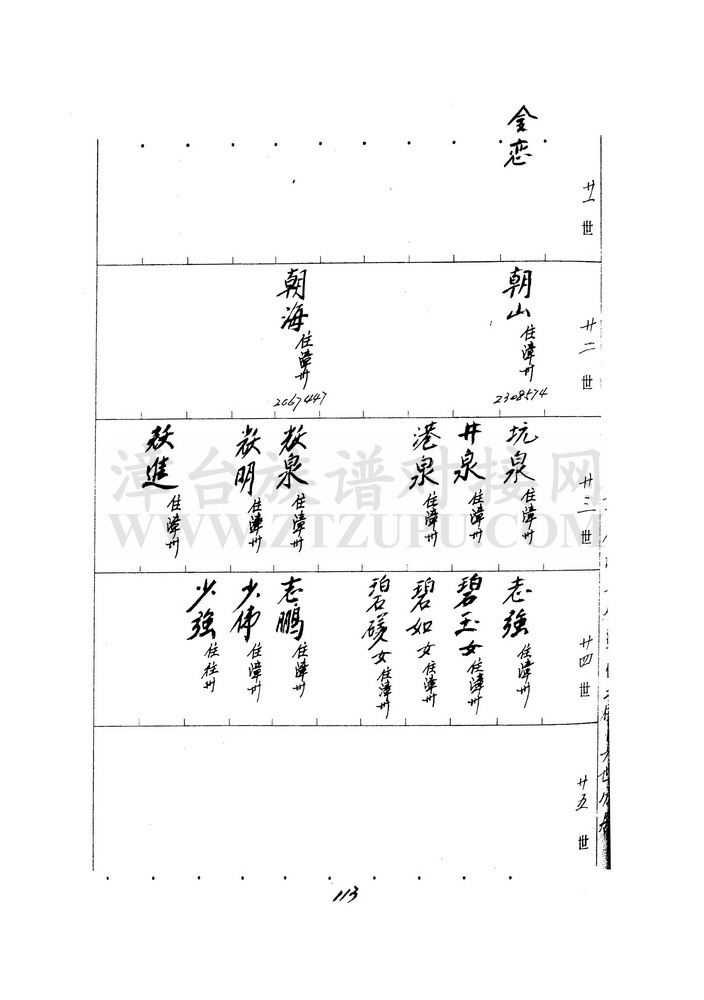 金恋
廿一世
朝山 住漳州
2308574
朝海 住漳州
2067447
廿二世
坑泉 住漳州
井泉 住漳州
港泉 住漳州
毅泉 住漳州
毅明 住漳州
毅進 住漳州
廿三世
志強 住漳州
碧玉女 住漳州
碧如女 住漳州
碧
女 住漳州
志鹏 住漳州
少伟 住漳州
少強 住
州
廿四世
廿五世
113
漳台族谱对接网
WWW.ZTZUPU.COM